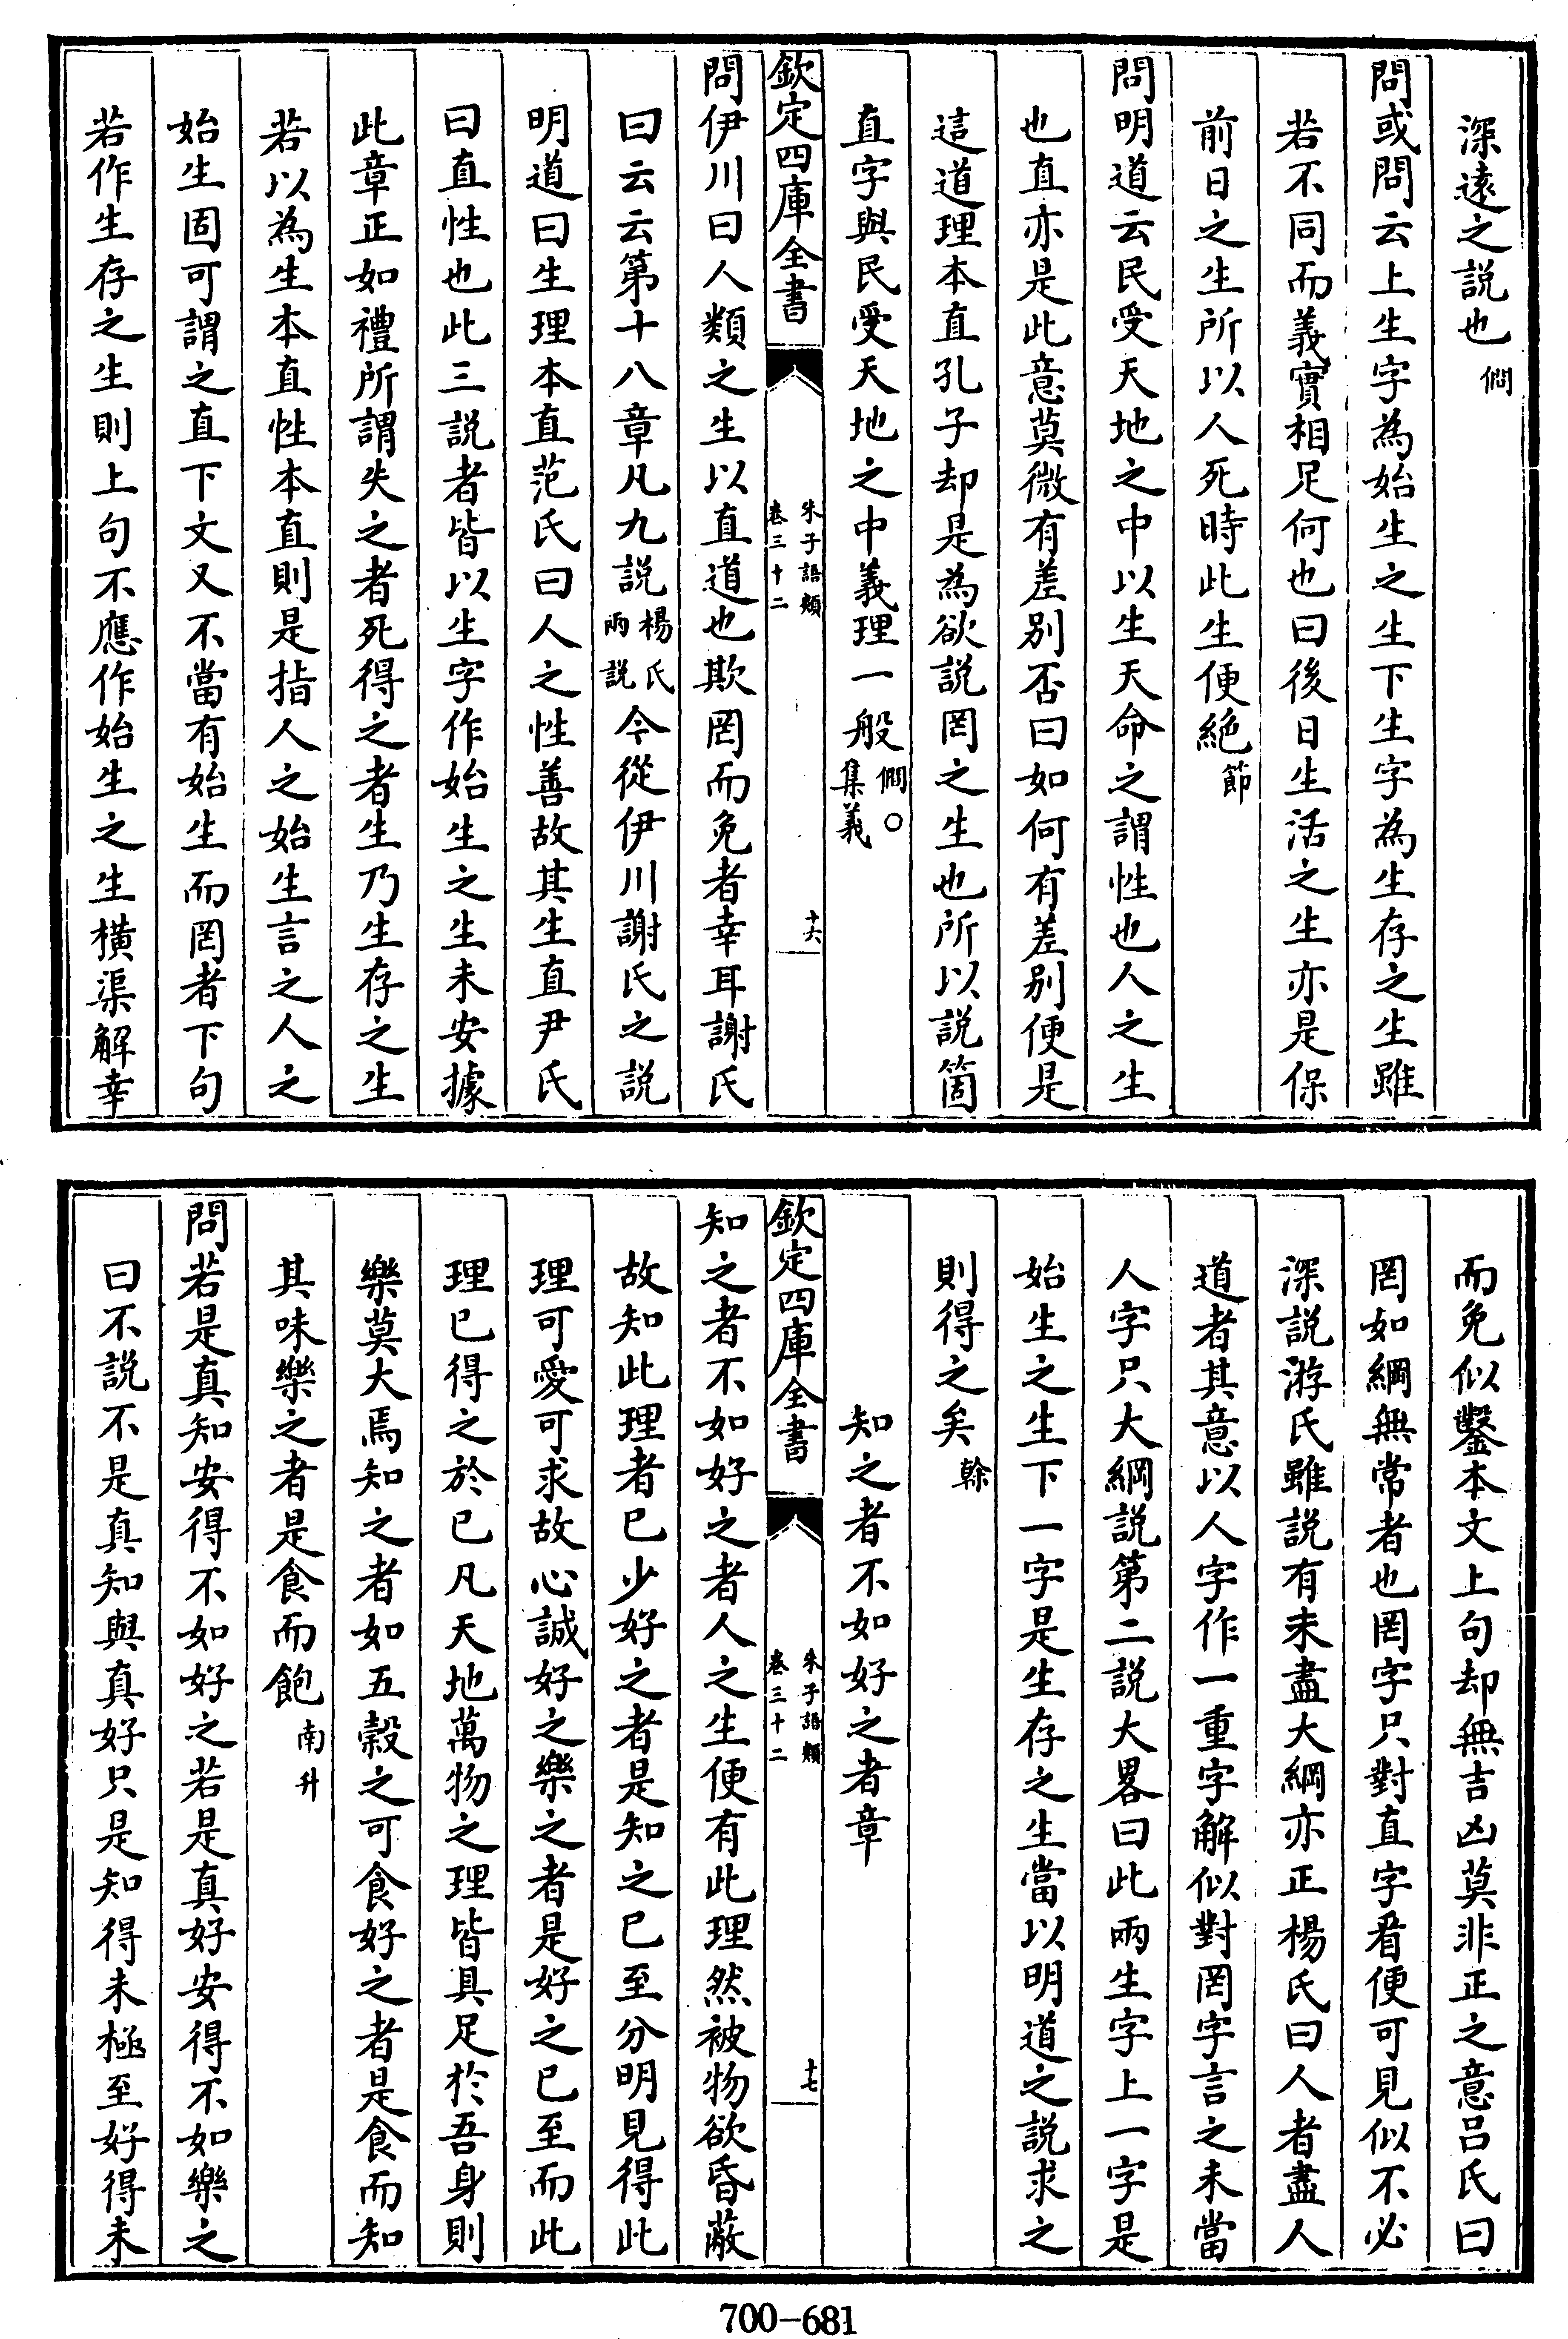 深遠之説也 僩
問或問云上生字為始生之生下生字為生存之生雖
若不同而義實相足何也曰後日生活之生亦是保
前日之生所以人死時此生便絶 節
問明道云民受天地之中以生天命之謂性也人之生
也直亦是此意莫微有差别否曰如何有差别便是
這道理本直孔子却是為欲説罔之生也所以説箇
直字與民受天地之中義理一般 僩○集義
欽定四庫全書
朱子語類
卷三十二
十六
問伊川曰人類之生以直道也欺罔而免者幸耳謝氏
曰云云第十八章凡九説楊氏兩説今從伊川謝氏之説
明道曰生理本直范氏曰人之性善故其生直尹氏
曰直性也此三説者皆以生字作始生之生未安據
此章正如禮所謂失之者死得之者生乃生存之生
若以為生本直性本直則是指人之始生言之人之
始生固可謂之直下文又不當有始生而罔者下句
若作生存之生則上句不應作始生之生横渠解幸
而免似鑿本文上句却無吉凶莫非正之意吕氏曰
罔如綱無常者也罔字只對直字看便可見似不必
深説游氏雖説有未盡大綱亦正楊氏曰人者盡人
道者其意以人字作一重字解似對罔字言之未當
人字只大綱説第二説大畧曰此兩生字上一字是
始生之生下一字是生存之生當以明道之説求之
則得之矣 榦
知之者不如好之者章
欽定四庫全書
朱子語類
卷三十二
十七
知之者不如好之者人之生便有此理然被物欲昏蔽
故知此理者已少好之者是知之已至分明見得此
理可愛可求故心誠好之樂之者是好之已至而此
理已得之於已凡天地萬物之理皆具足於吾身則
樂莫大焉知之者如五穀之可食好之者是食而知
其味樂之者是食而飽 南升
問若是真知安得不如好之若是真好安得不如樂之
曰不説不是真知與真好只是知得未極至好得未
700-681